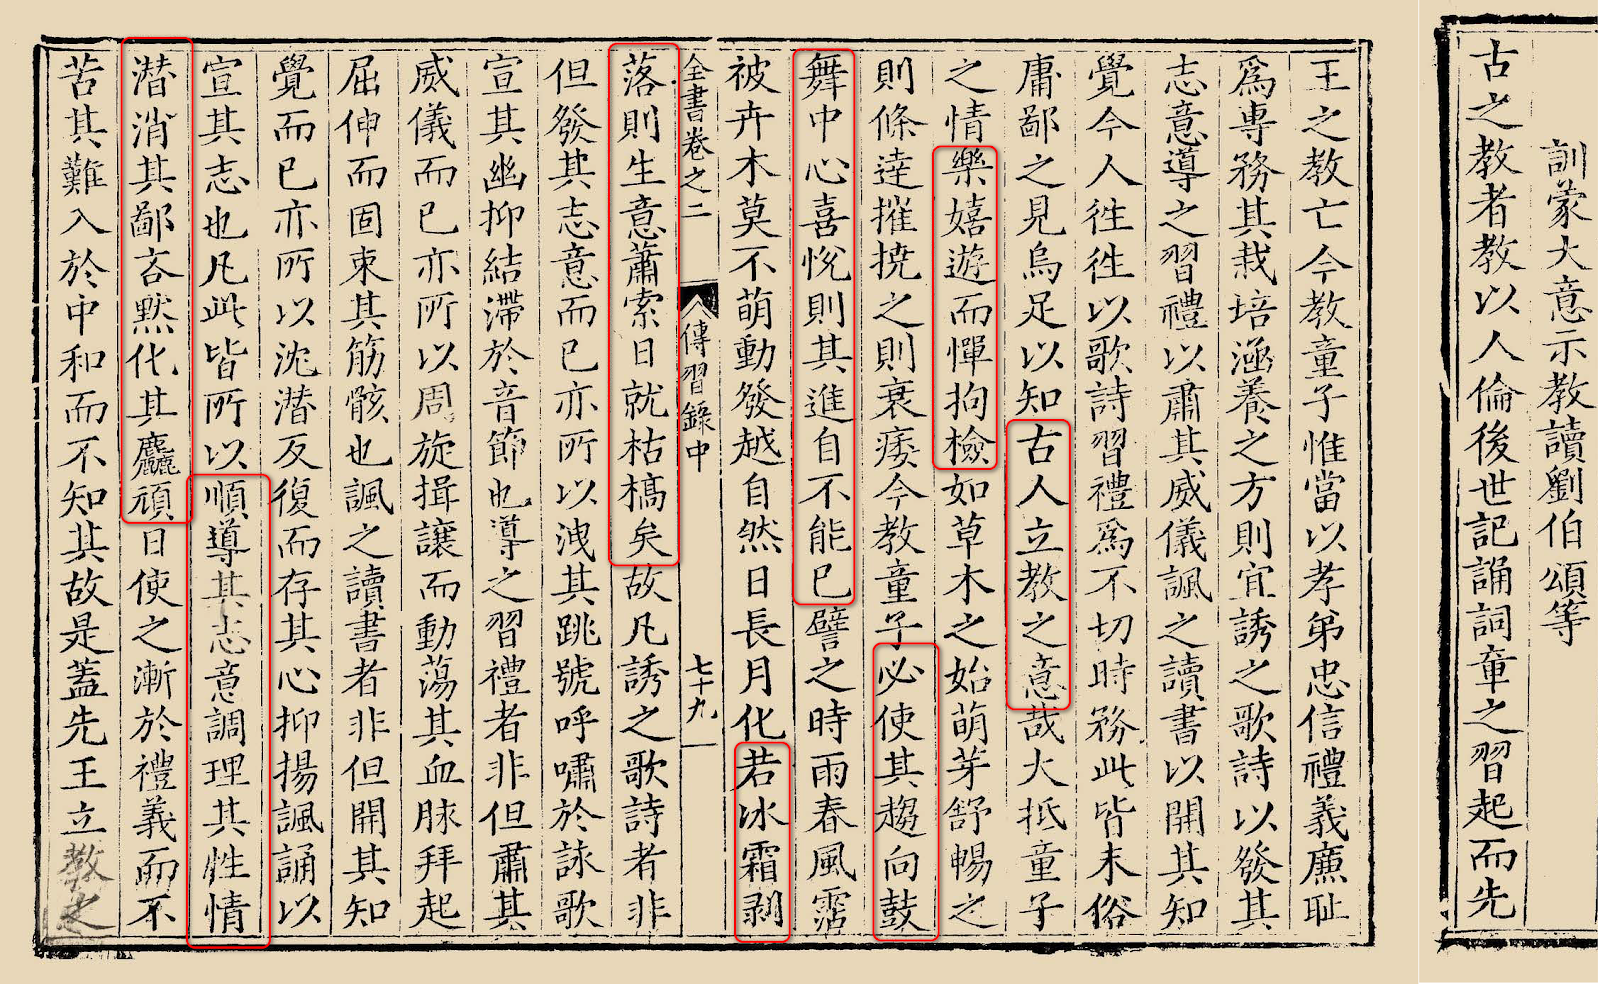 訓蒙大意示教讀劉伯頌等
古之教者教以人倫後世記誦詞章之習起而先
王之教亡今教童子惟當以孝弟忠信禮義廉耻
爲專務其栽培涵養之方則宜誘之歌詩以發其
志意導之習禮以肅其威儀諷之讀書以開其知
覺今人徃徃以歌詩習禮爲不切時務此皆末俗
庸鄙之見烏足以知古人立教之意哉大抵童子
之情樂嬉遊而憚拘檢如草木之始萌芽舒暢之
則條達摧撓之則衰痿今教童子必使其趨向鼓
舞中心喜悅則其進自不能已譬之時雨春風霑
被卉木莫不萌動發越自然日長月化若冰霜剥
全書卷之二 傳習錄中 七十九
落則生意蕭索日就枯槁矣故凡誘之歌詩者非
但發其志意而已亦所以洩其跳號呼嘯於詠歌
宣其幽抑結滯於音節也導之習禮者非但肅其
威儀而已亦所以周旋揖讓而動蕩其血脉拜起
屈伸而固束其筋骸也諷之讀書者非但開其知
覺而已亦所以沈潜反復而存其心抑揚諷誦以
宣其志也凡此皆所以順導其志意調理其性情
潜消其鄙吝默化其麤頑日使之漸於禮義而不
苦其難入於中和而不知其故是蓋先王立教之